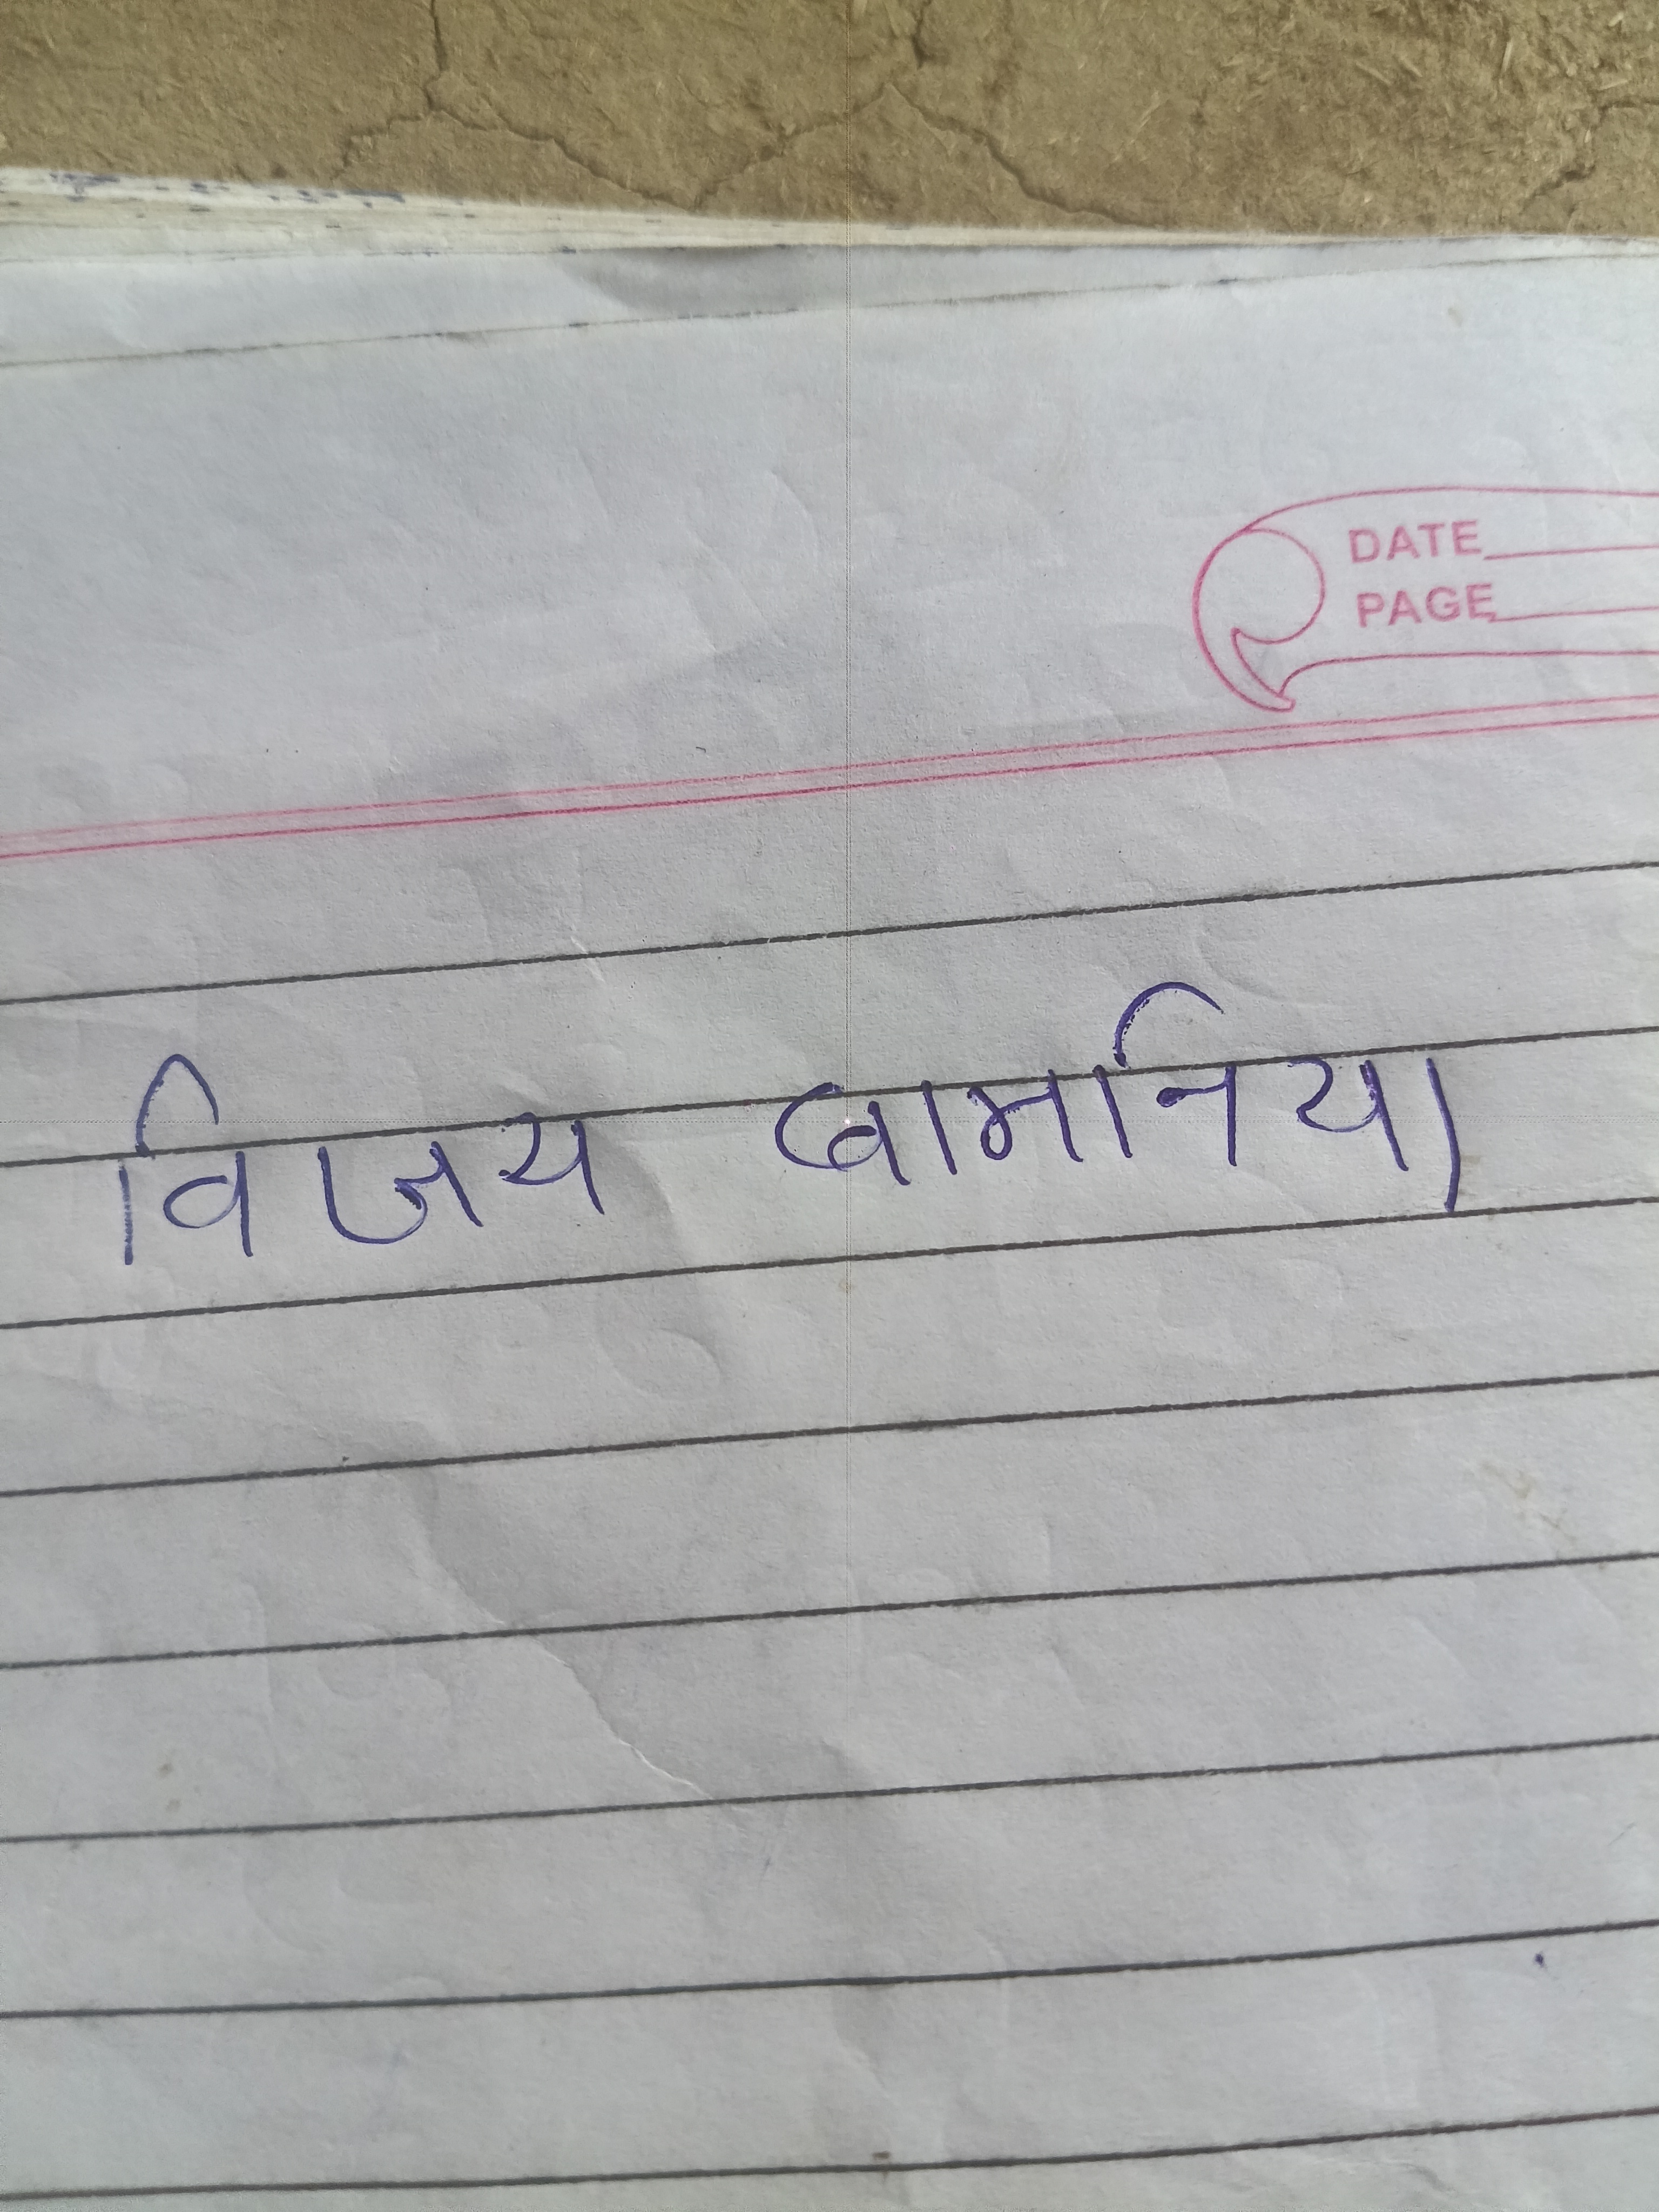 DATE
PAGE
विजय बामनिया